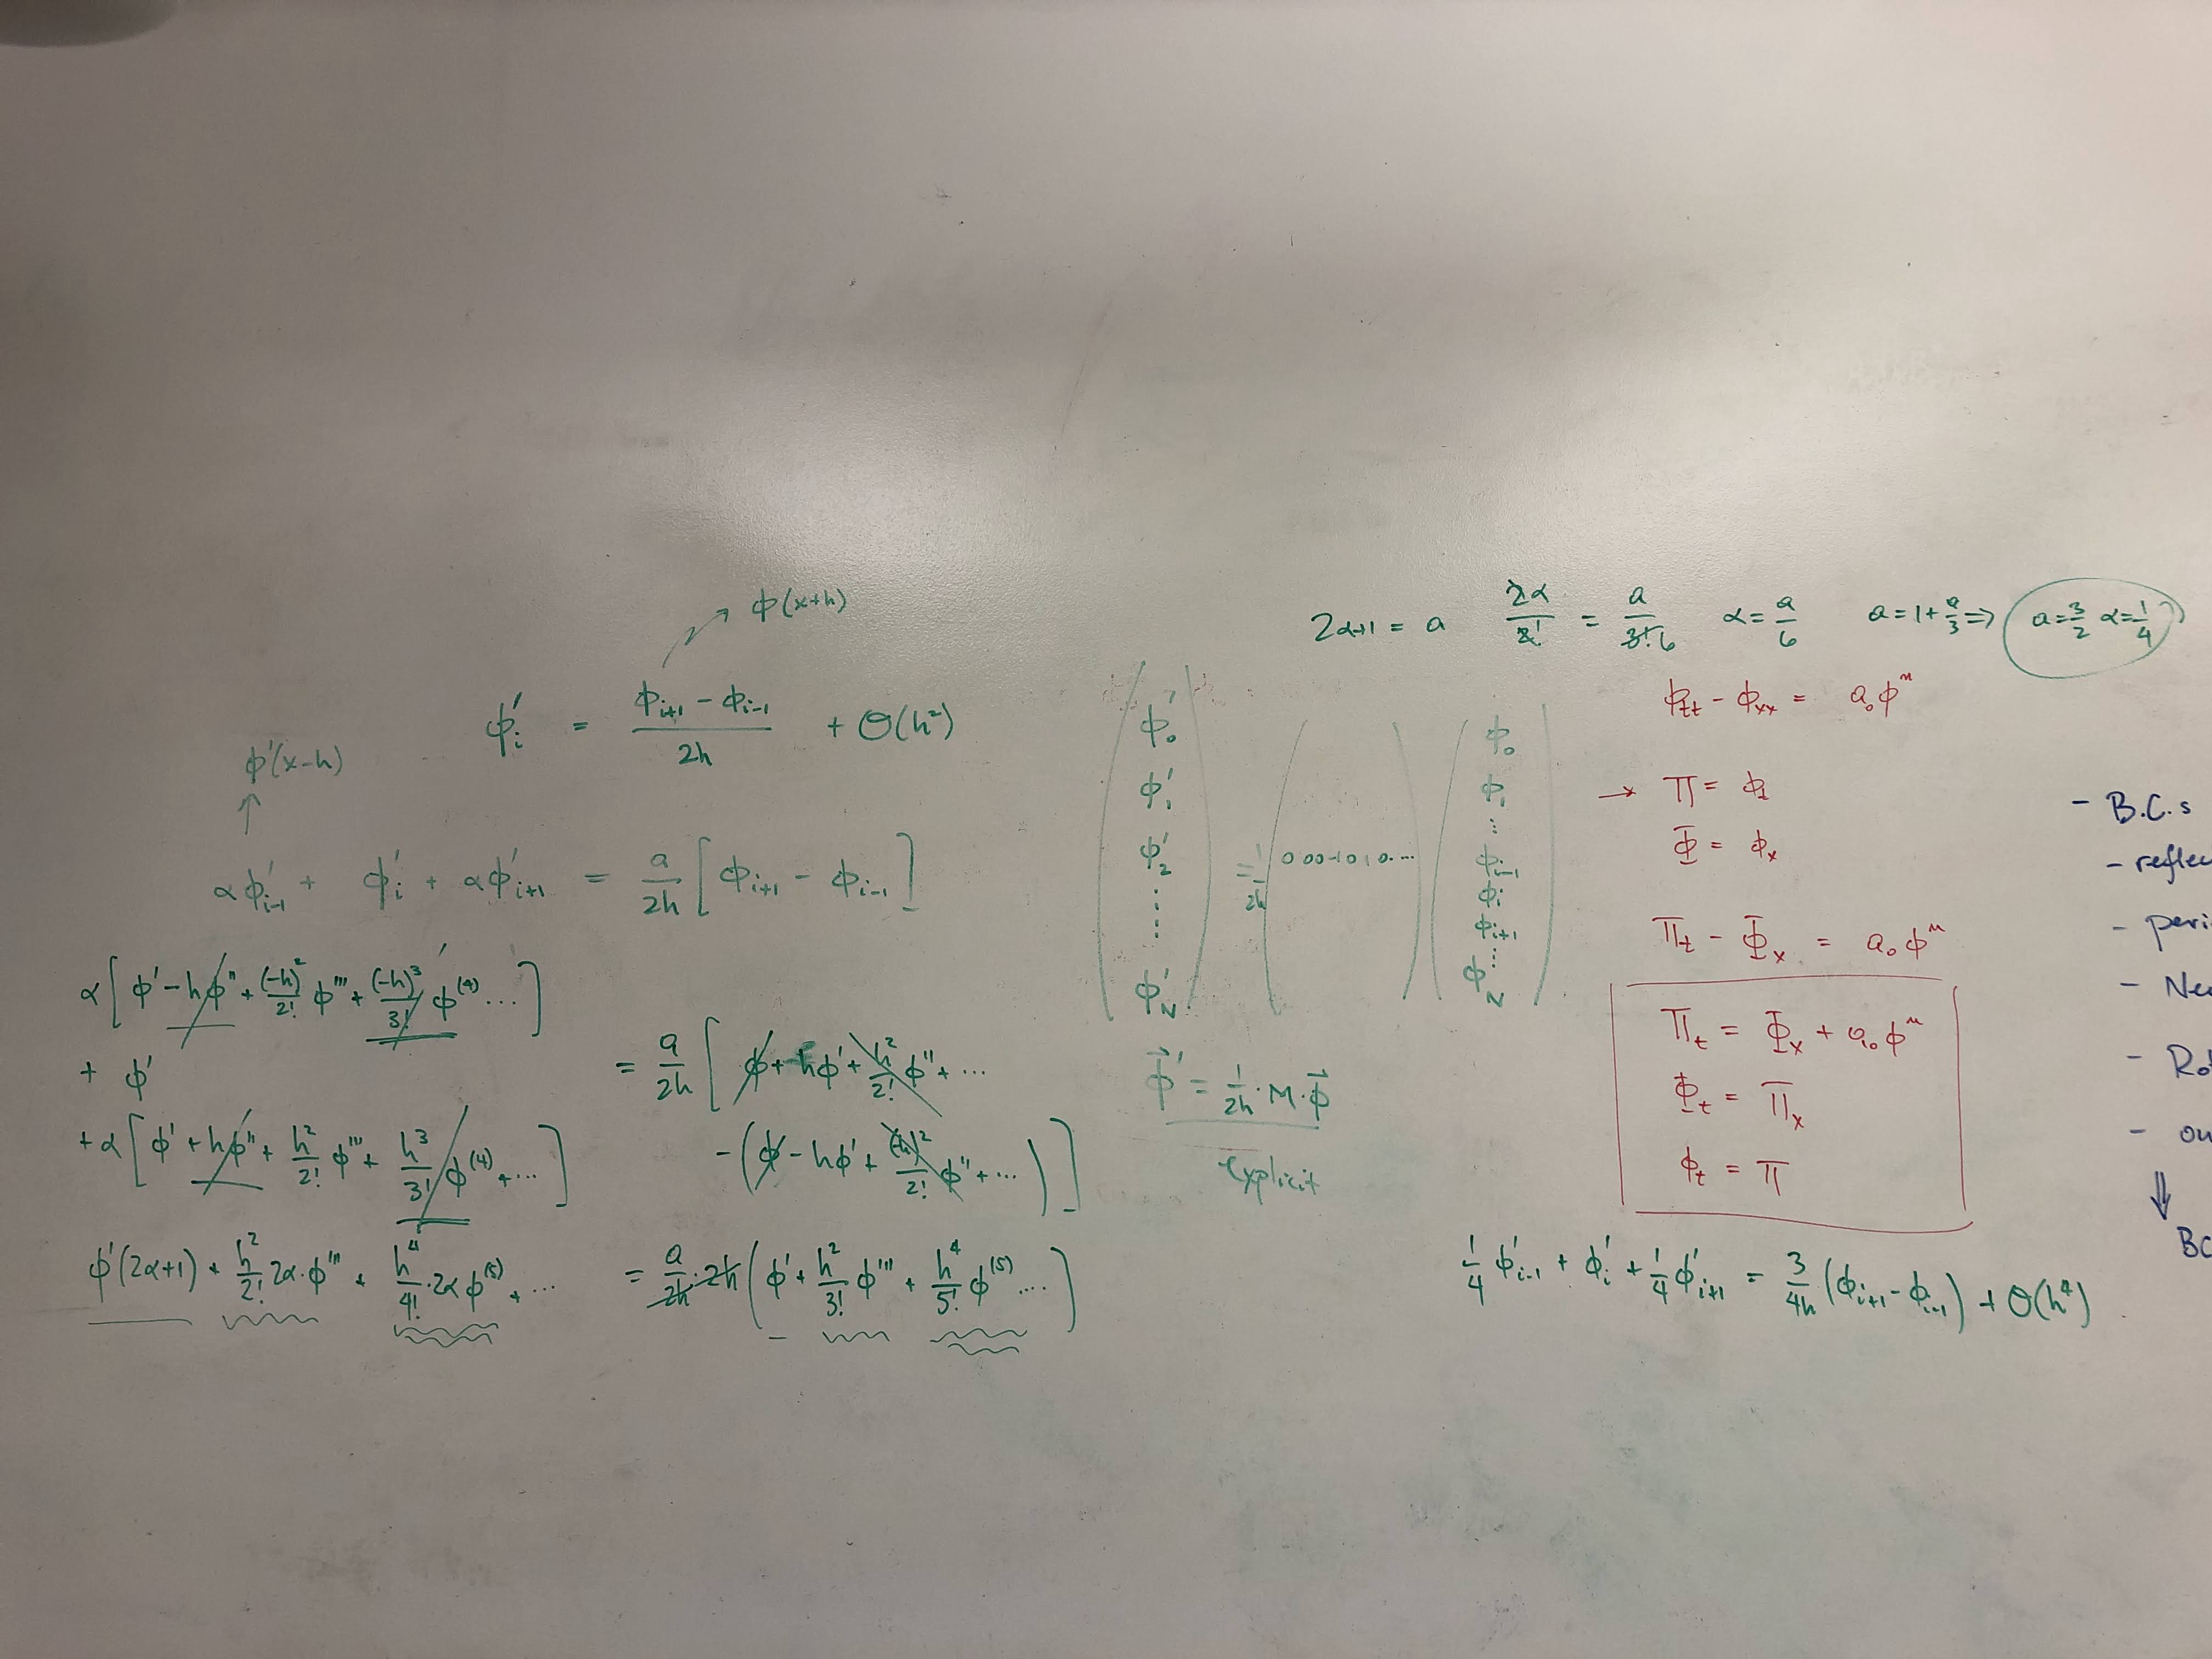 ϕ(x+h)
ϕ'ᵢ = (ϕᵢ₊₁ − ϕᵢ₋₁)/2h + O(h²)
ϕ'(x−h)
αϕ'ᵢ₋₁ + ϕ'ᵢ + αϕ'ᵢ₊₁ = a/2h [ϕᵢ₊₁ − ϕᵢ₋₁]
α[ϕ' − hϕ'' + (−h)²/2! ϕ''' + (−h)³/3! ϕ⁽⁴⁾ ...]
+ ϕ' = a/2h [ϕ + hϕ' + h²/2! ϕ'' + ...
+ α[ϕ' + hϕ'' + h²/2! ϕ''' + h³/3! ϕ⁽⁴⁾ + ...] − (ϕ − hϕ' + (−h)²/2! ϕ'' + ...)]
ϕ'(2α+1) + h²/2! 2α·ϕ''' + h⁴/4! · 2α ϕ⁽⁵⁾ + ... = a/2h · 2h (ϕ' + h²/3! ϕ''' + h⁴/5! ϕ⁽⁵⁾ ...)
2α+1 = a 2α/2! = a/3! 6 α = a/6 a = 1 + a/3 ⇒ a = 3/2 α = 1/4
(ϕ'₀ ϕ'₁ ϕ'₂ ⋮ ϕ'_N) = 1/2h (0 0 0 −1 0 1 0 ...) (ϕ₀ ϕ₁ ⋮ ϕᵢ₋₁ ϕᵢ ϕᵢ₊₁ ⋮ ϕ_N)
ϕ⃗' = 1/2h · M · ϕ⃗
explicit
ϕₜₜ − ϕₓₓ = a₀ϕⁿ
→ Π = ϕₜ
Φ = ϕₓ
Πₜ − Φₓ = a₀ϕⁿ
Πₜ = Φₓ + a₀ϕⁿ
Φₜ = Πₓ
ϕₜ = Π
1/4 ϕ'ᵢ₋₁ + ϕ'ᵢ + 1/4 ϕ'ᵢ₊₁ = 3/4h (ϕᵢ₊₁ − ϕᵢ₋₁) + O(h⁴)
- B.C.s
- reflec
- peri
- Neu
- Ro
- ou
⇓
BC